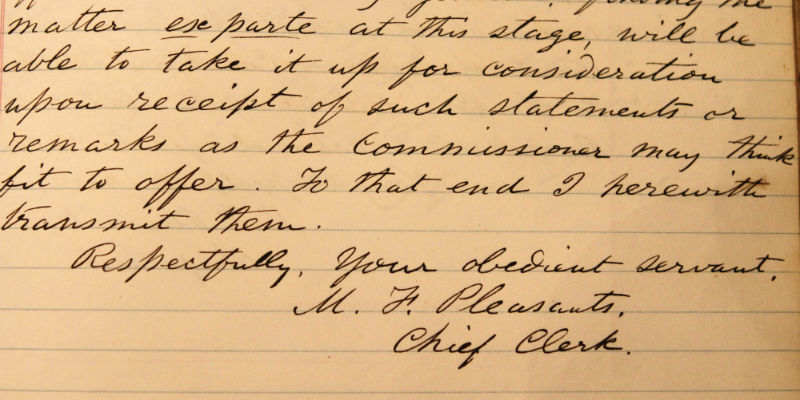 the
matter ex parte at this stage, will be
able to take it up for consideration
upon receipt of such statements or
remarks as the Commissioner may think
fit to offer. To that end I herewith
transmit them.
Respectfully, Your obedient servant,
M. F. Pleasants.
Chief Clerk.